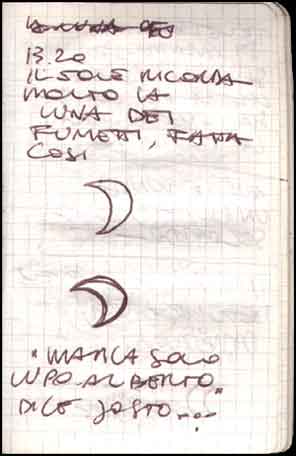 13.20
IL SOLE RICORDA
MOLTO LA
LUNA DEI
FUMETTI, FATTA
COSI
"MANCA SOLO
LUPO ALBERTO"
DICE JOSTO...